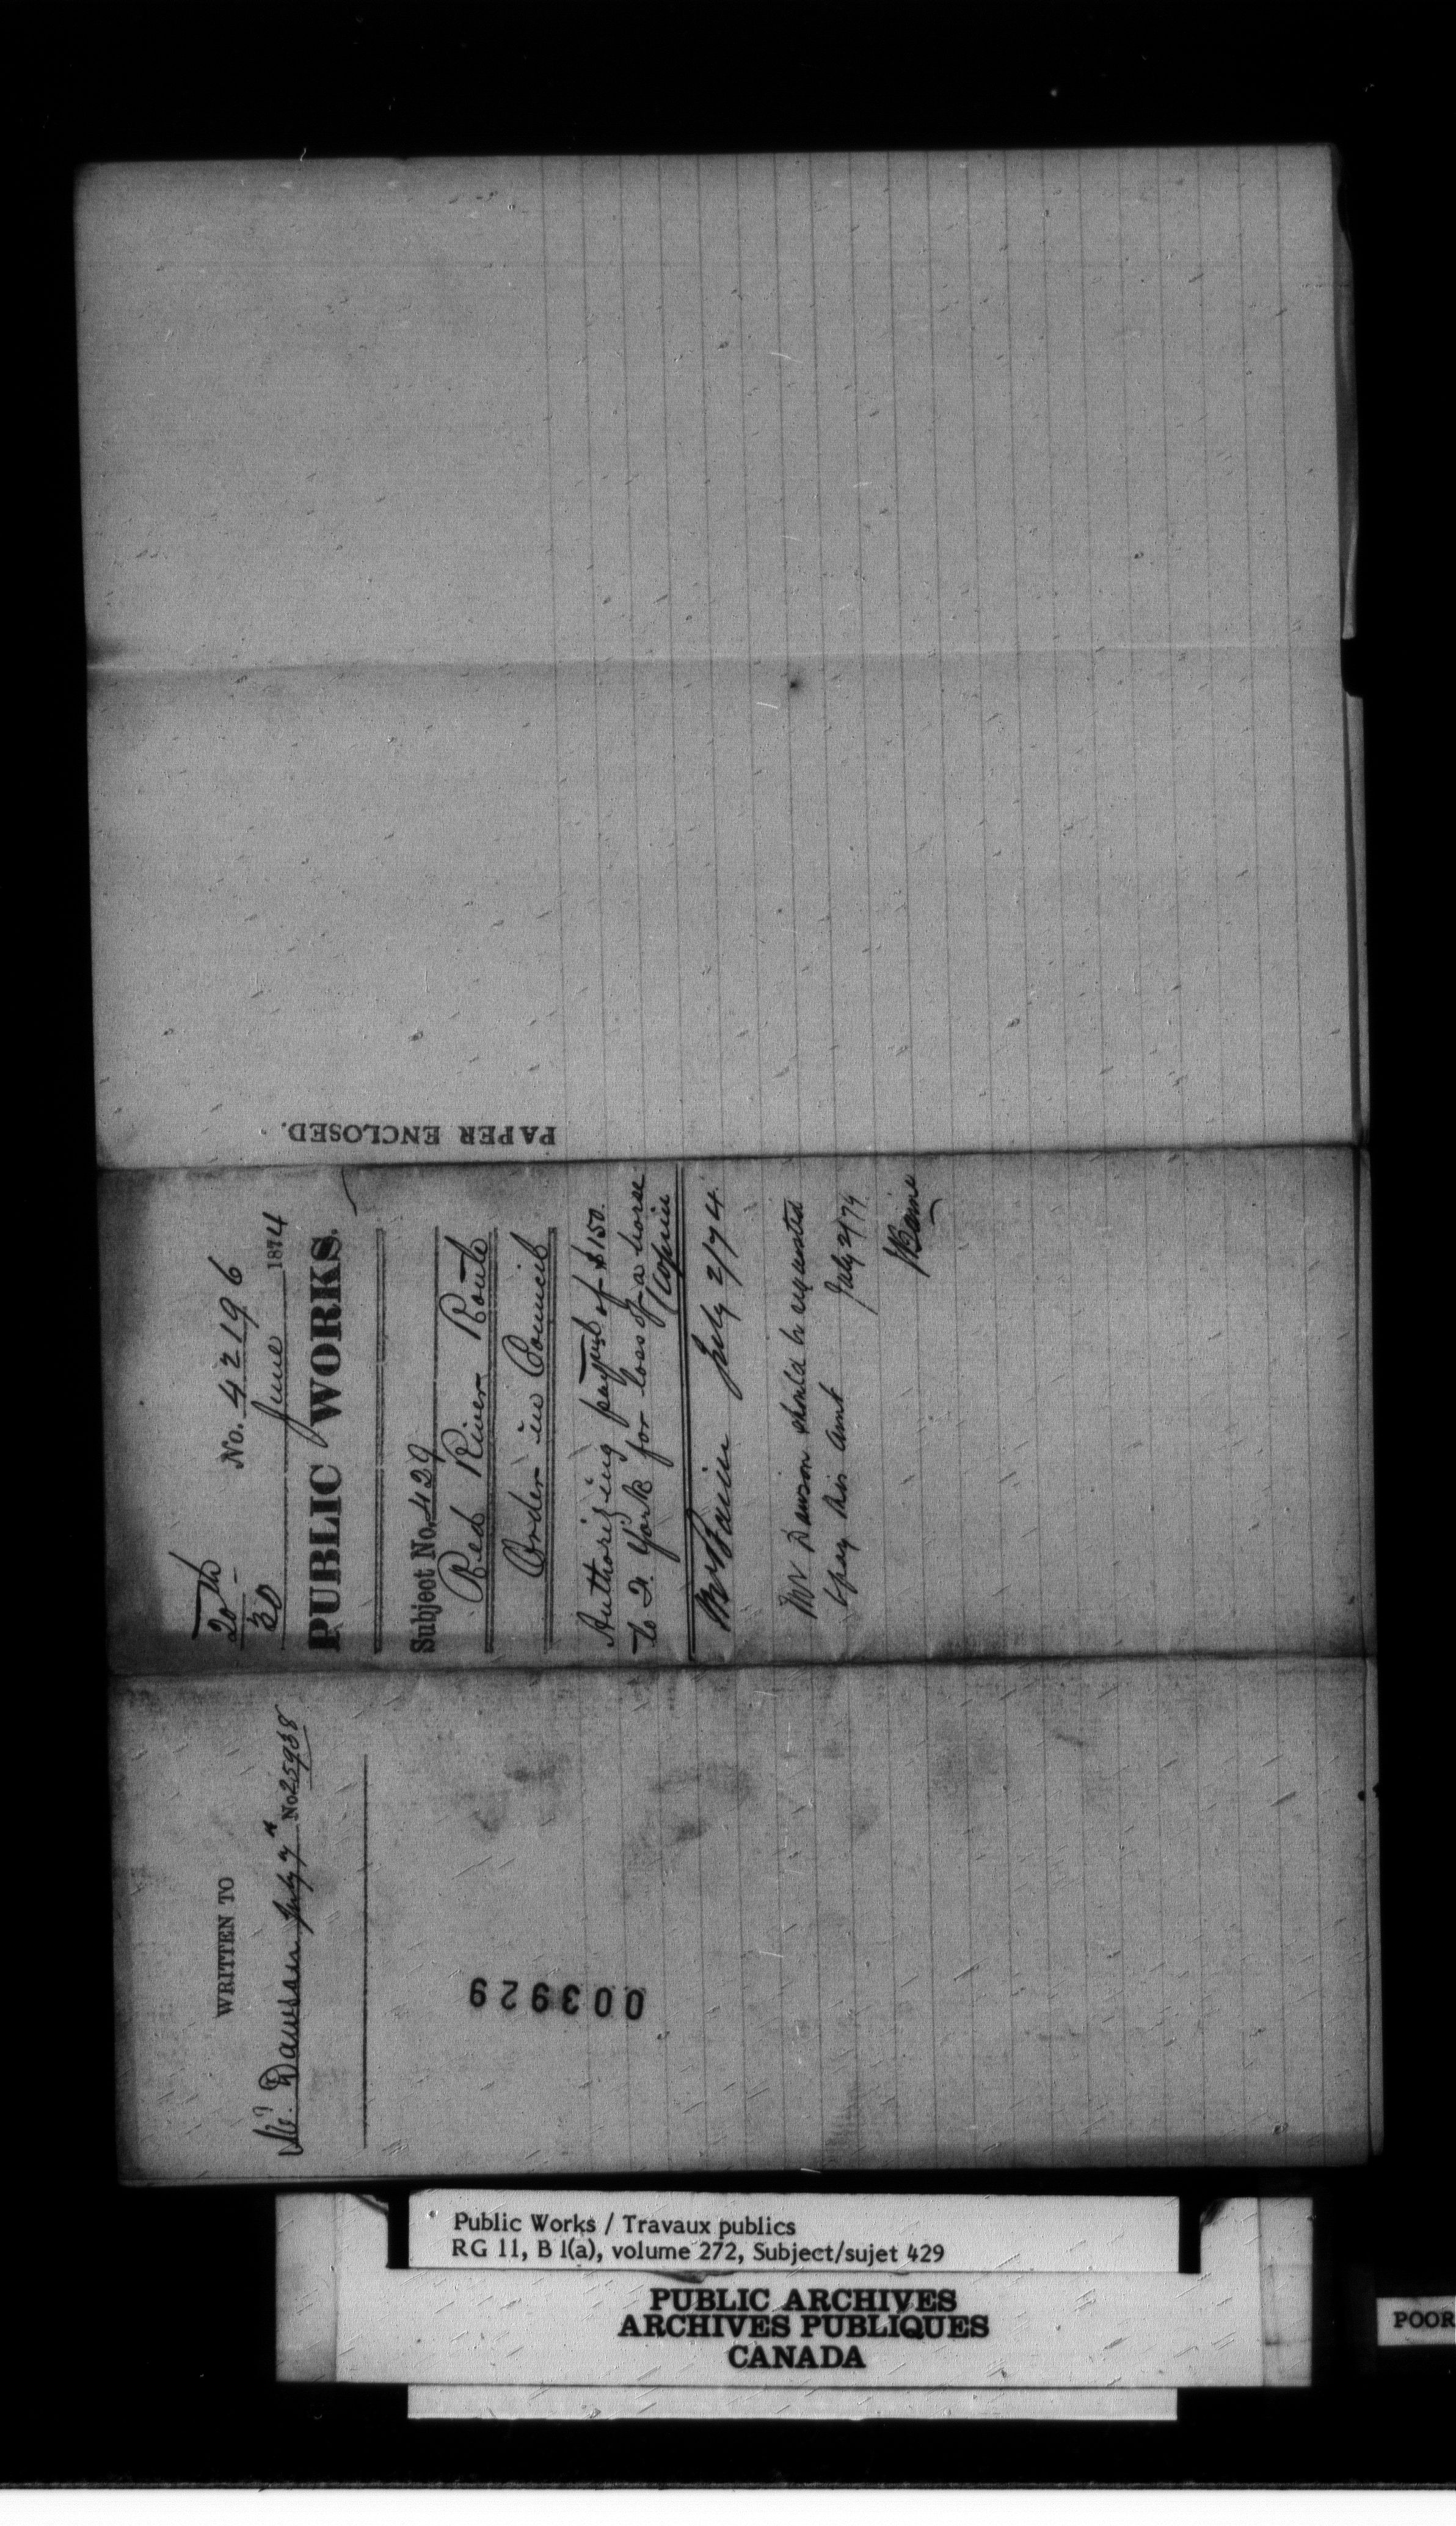 WRITTEN TO
Mr. Dawson July 7th No 25938
003929
20th
30
No. 42196
June 1874
PUBLIC WORKS.
Subject No. 429
Red River Route
Order in Council
Authorizing paymt of $150.
to F. York for loss of a horse
(Copies
Mr Baine July 2/74
Mr Dawson should be requested
to pay this amt
July 2/74
JBaine
PAPER ENCLOSED.
Public Works / Travaux publics
RG 11, B 1(a), volume 272, Subject/sujet 429
PUBLIC ARCHIVES
ARCHIVES PUBLIQUES
CANADA
POOR